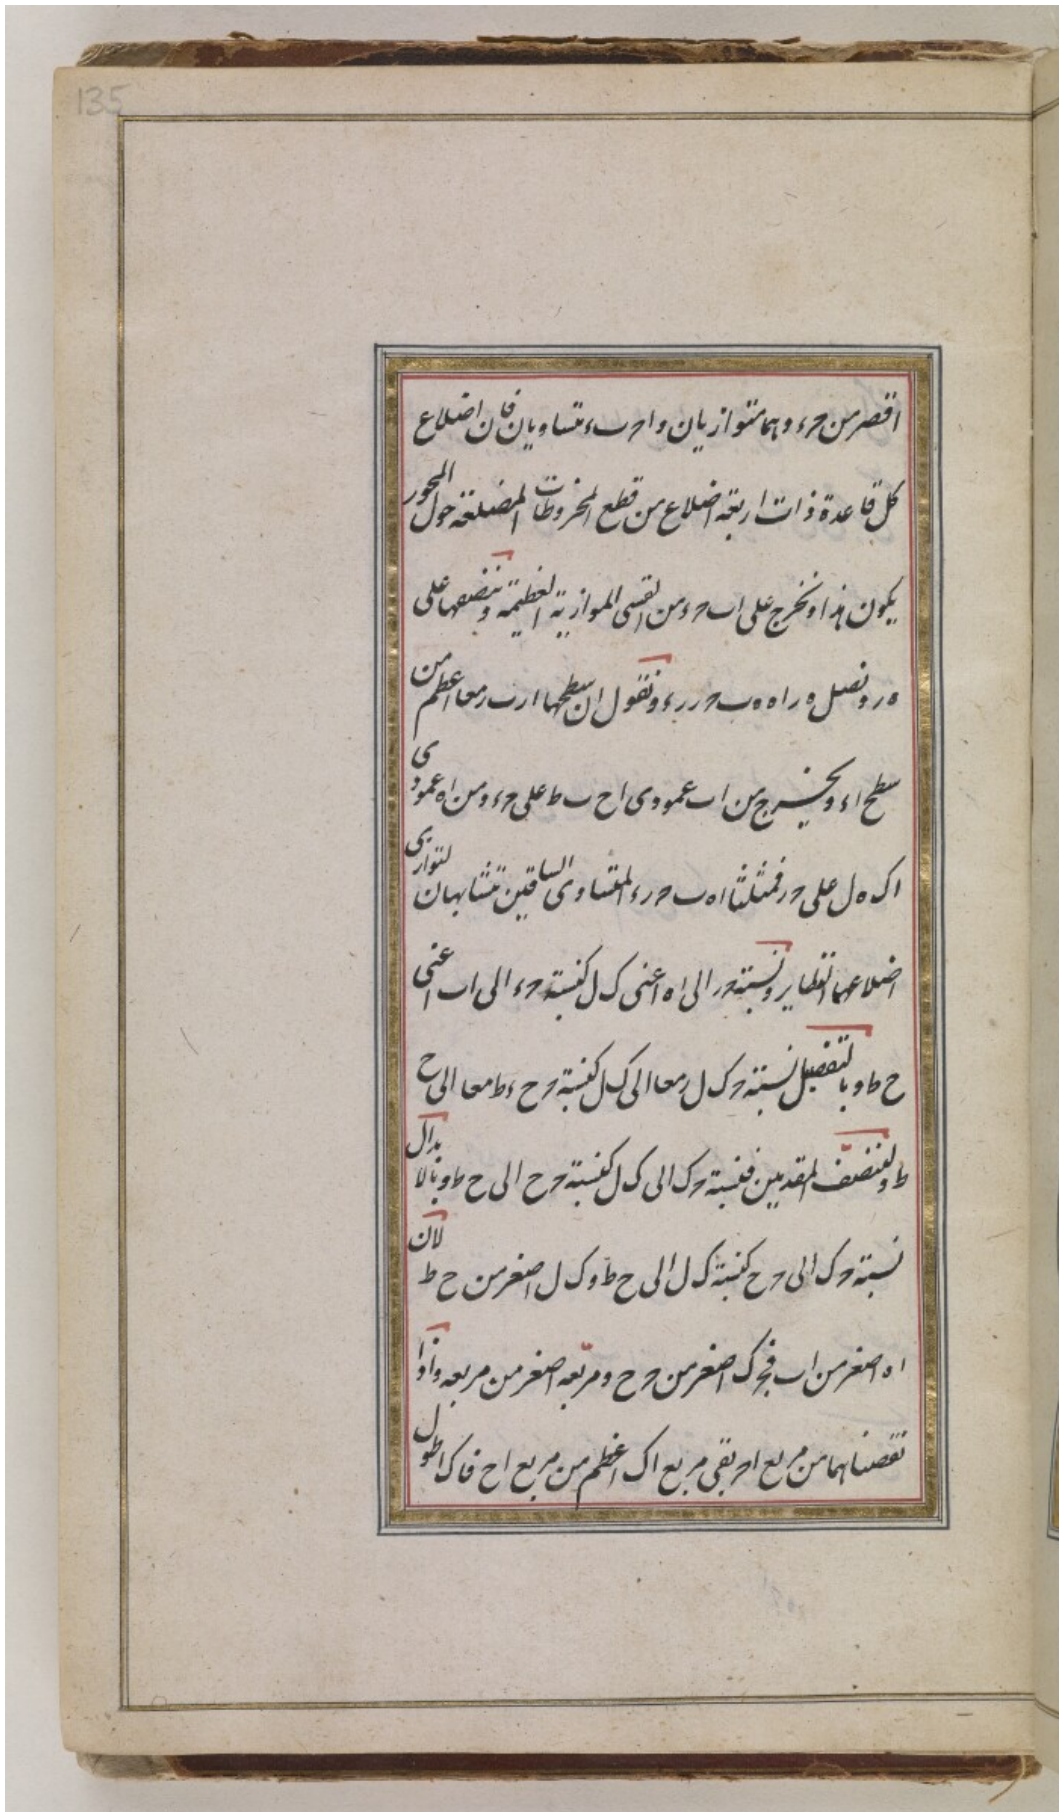 135
اقصر من حء وهما متوازيان واح ب ء متساويان فان اضلاع
كل قاعدة ذات اربعة اضلاع من قطع المخروطات المضلعة حول المحور
يكون هذا ونخرج على اب حء من القسى الموازية العظيمة وننصفهما على
ه ر ونصل ه ر اه ه ب حر رء ونقول ان سطحها ار ب ر معا اعظم من
سطح اء ونخرج من اب عمودى اح ب ط على حء ومن اه عمودى
اك ه ل على حر فمثلثا اه ب حرء المتساوى الساقين متشابهان لتوازى
اضلاعهما النظاير ونسبة حر الى اه اعنى ك ل كنسبة حء الى اب اعنى
ح ط وبالتفصيل نسبة حك ل ر معا الى ك ل كنسبة حح ء ط معا الى ح
ط ولننصف المقدمين فنسبة حك الى ك ل كنسبة حح الى ح ط وبالابدال
نسبة حك الى حح كنسبة ك ل الى ح ط وك ل اصغر من ح ط لان
اه اصغر من اب فحك اصغر من حح ومربعه اصغر من مربعه واذا
نقصناهما من مربع اح بقى مربع اك اعظم من مربع اح فاك اطول